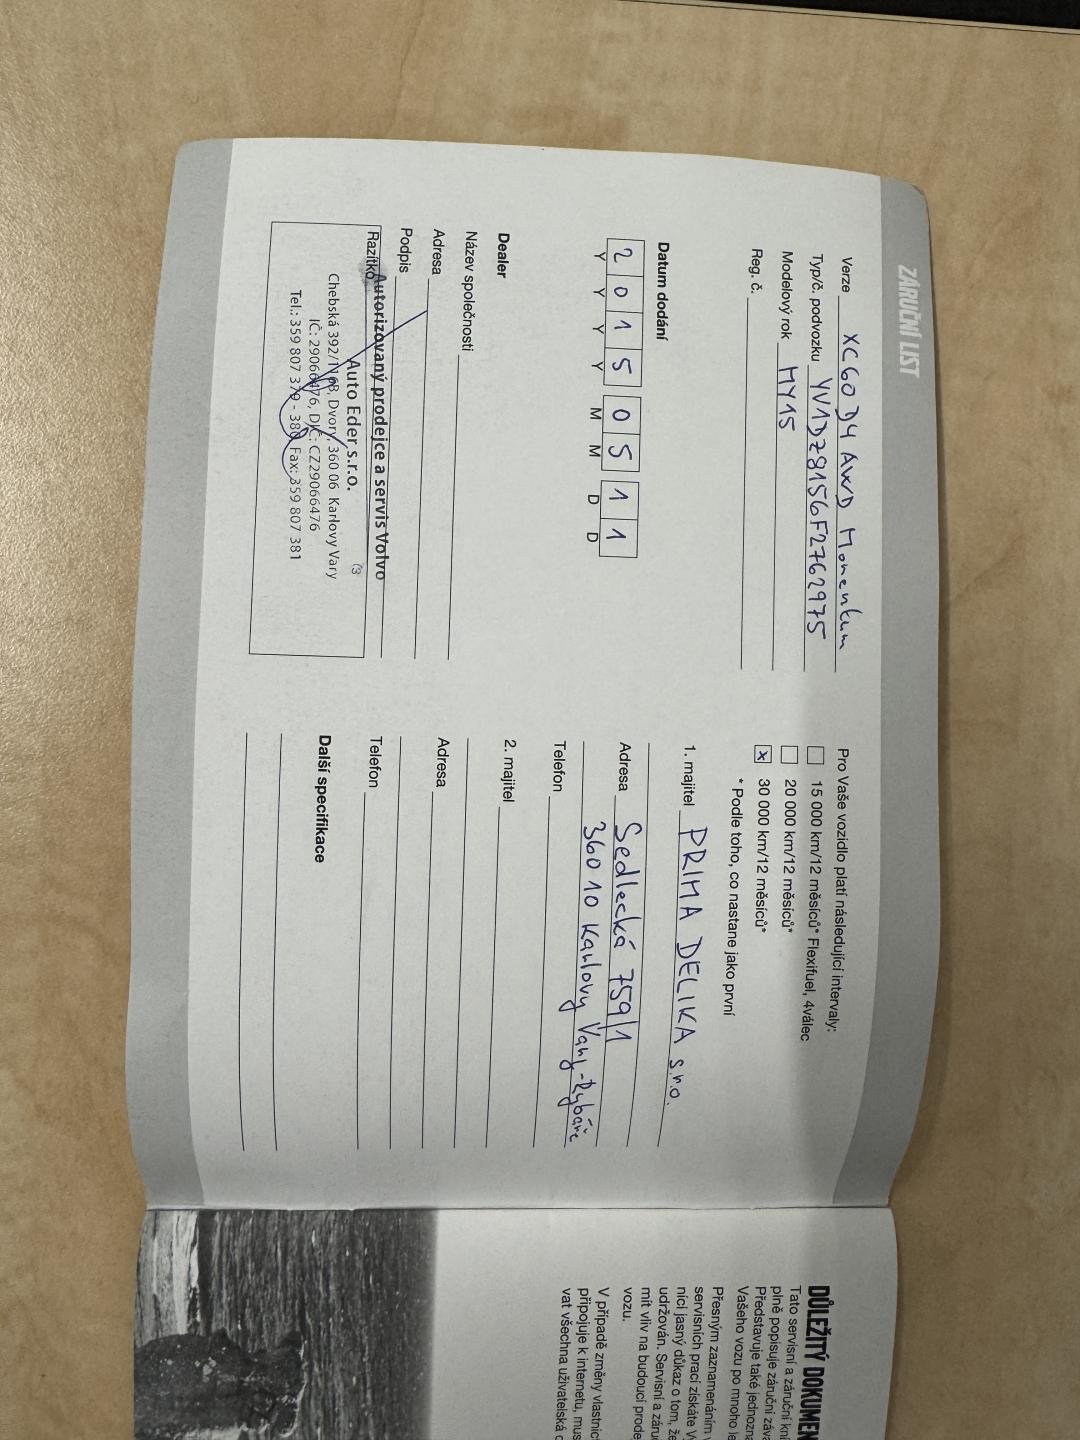 ZÁRUČNÍ LIST
Verze XC60 D4 AWD Momentum
Typ/č. podvozku YV1DZ8156F2762975
Modelový rok MY15
Reg. č.
Datum dodání
2 0 1 5 0 5 1 1
Y Y Y Y M M D D
Dealer
Název společnosti
Adresa
Podpis
Razítko
Autorizovaný prodejce a servis Volvo
Auto Eder s.r.o.
Chebská 392/116B, Dvory, 360 06 Karlovy Vary
IČ: 29066476, DIČ: CZ29066476
Tel.: 359 807 379 - 380, Fax: 359 807 381
Pro Vaše vozidlo platí následující intervaly:
15 000 km/12 měsíců* Flexifuel, 4válec
20 000 km/12 měsíců*
x 30 000 km/12 měsíců*
* Podle toho, co nastane jako první
1. majitel PRIMA DELIKA s.r.o.
Adresa Sedlecká 759/1
360 10 Karlovy Vary-Rybáře
Telefon
2. majitel
Adresa
Telefon
Další specifikace
DŮLEŽITÝ
Tato servisní a záruční
plně popisuje záruční
Představuje také
Vašeho vozu po mnoho
Přesným zaznamenáním
servisních prací získáte
nící jasný důkaz o tom, že
udržován. Servisní a
mít vliv na budoucí
vozu.
V případě změny
připojuje k internetu,
vat všechna uživatelská